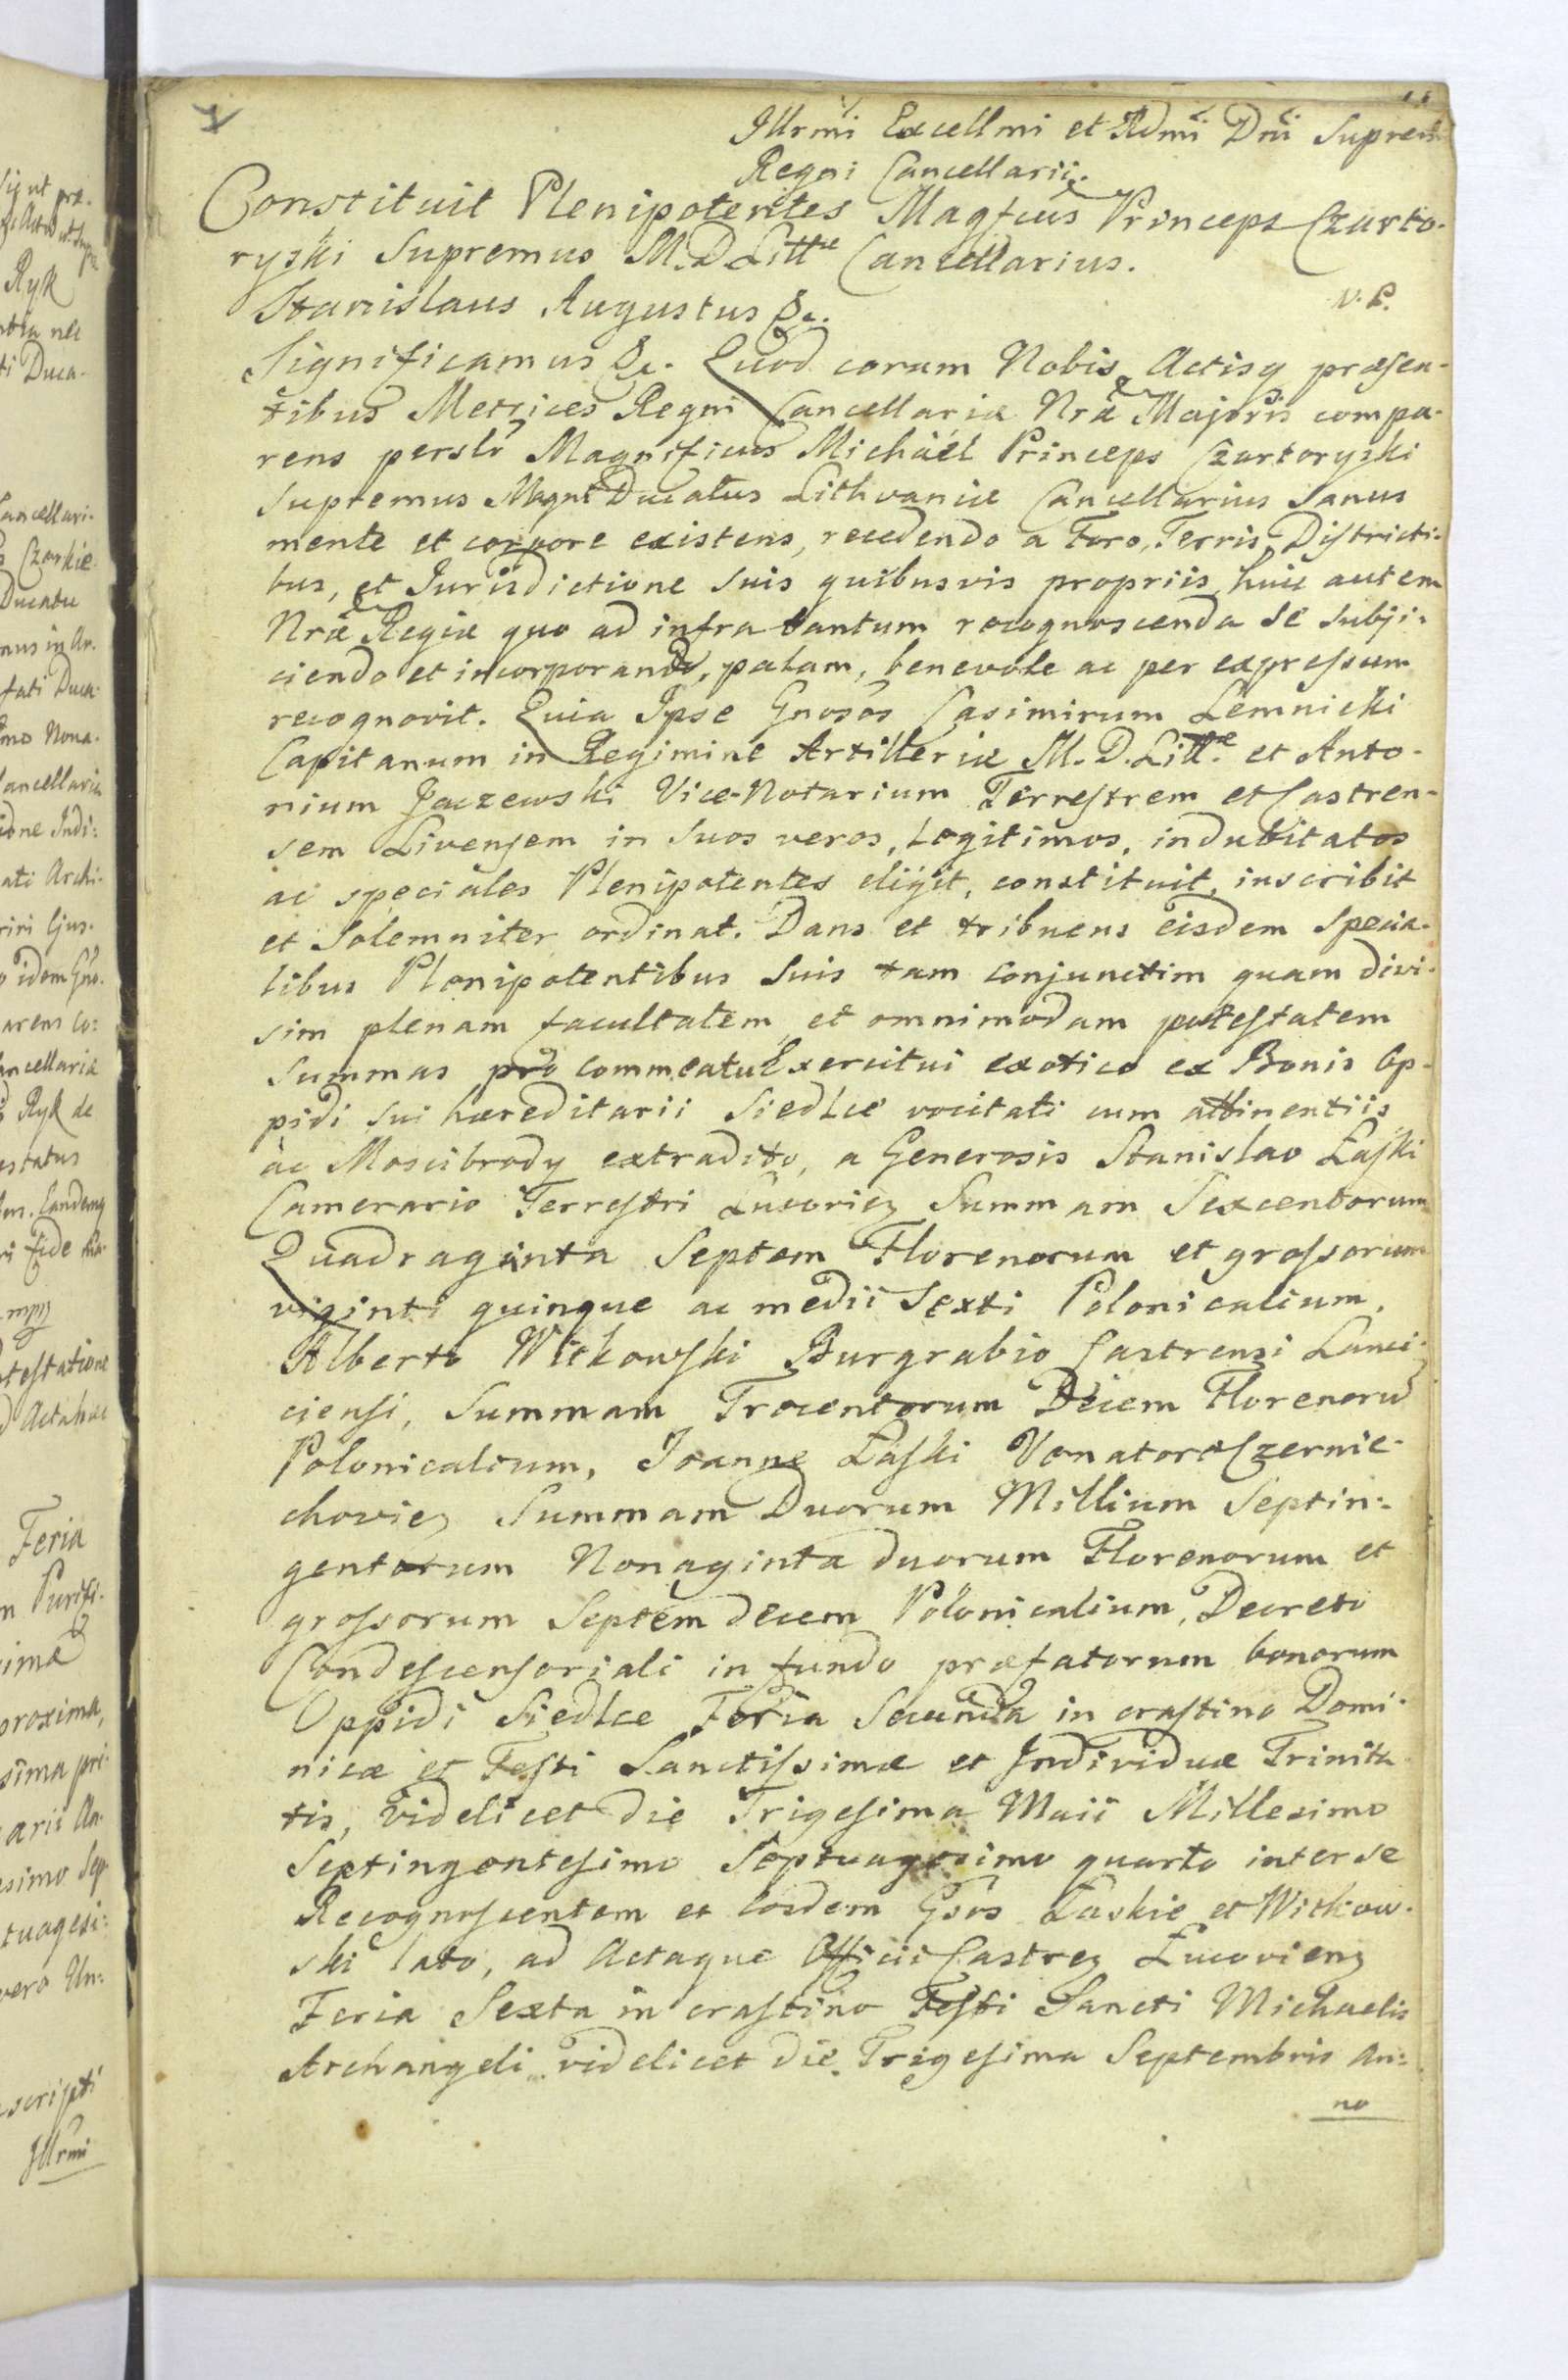 Illrmi Excellmi et Rdmi Dni Supremi
Regni Cancellarii.
Constituit Plenipotentes Magfcus Princeps Czarto-
ryski Supremus M. D. Littæ Cancellarius.
Stanislaus Augustus &c. N. P.
Significamus &c. Quod coram Nobis Actisq præsen-
tibus Metrices Regni Cancellariæ Nræ Majoris compa-
rens perslr Magnificus Michäel Princeps Czartoryski
Supremus Magni Ducatus Lithvaniæ Cancellarius sanus
mente et corpore existens, recedendo a Foro, Terris, Districti-
bus, et Jurisdictione suis quibusvis propriis, huic autem
Nræ Regiæ quo ad infra tantum recognoscenda se subji-
ciendo et incorporando, palam, benevole ac per expressum
recognovit. Quia Ipse Gnosos Casimirum Lemnicki
Capitanum in Regimine Artilleriæ M. D. Littæ et Anto-
nium Jaczewski Vice-Notarium Terrestrem et Castren-
sem Livensem in suos veros, legitimos, indubitatos
ac speciales Plenipotentes eligit, constituit, inscribit
et solemniter ordinat. Dans et tribuens eisdem specia-
libus Plenipotentibus suis tam conjunctim quam divi-
sim plenam facultatem et omnimodam potestatem
summas pro commeatu Exercitui exotico ex Bonis Op-
pidi sui hæreditarii Siedlce vocitati cum attinentiis
ac Moscibrody extradito, a Generosis Stanislao Łaski
Camerario Terrestri Lucovien Summam Sexcentorum
Quadraginta Septem Florenorum et grossorum
viginti quinque ac medii sexti Polonicalium,
Alberto Witkowski Burgrabio Castrensi Lanci-
ciensi, Summam Trecentorum Decem Florenoru
Polonicalium, Joanne Łaski Venatore Czernie-
chovien Summam Duorum Millium Septin-
gentorum Nonaginta duorum Florenorum et
grossorum Septem decem Polonicalium, Decreto
Condescensoriali in fundo præfatorum bonorum
Oppidi Siedlce Feria Secunda in crastino Domi-
nicæ et Festi Sanctissimæ et Individuæ Trinita-
tis, videlicet die Trigesima Maii Millesimo
Septingentesimo Septuagesimo quarto inter se
Recognoscentem et eosdem Gsos Łaskie et Witkow-
ski lato, ad Actaque Officii Castren Lucovien
Feria Sexta in crastino Festi Sancti Michaelis
Archangeli videlicet die Trigesima Septembris An-
no